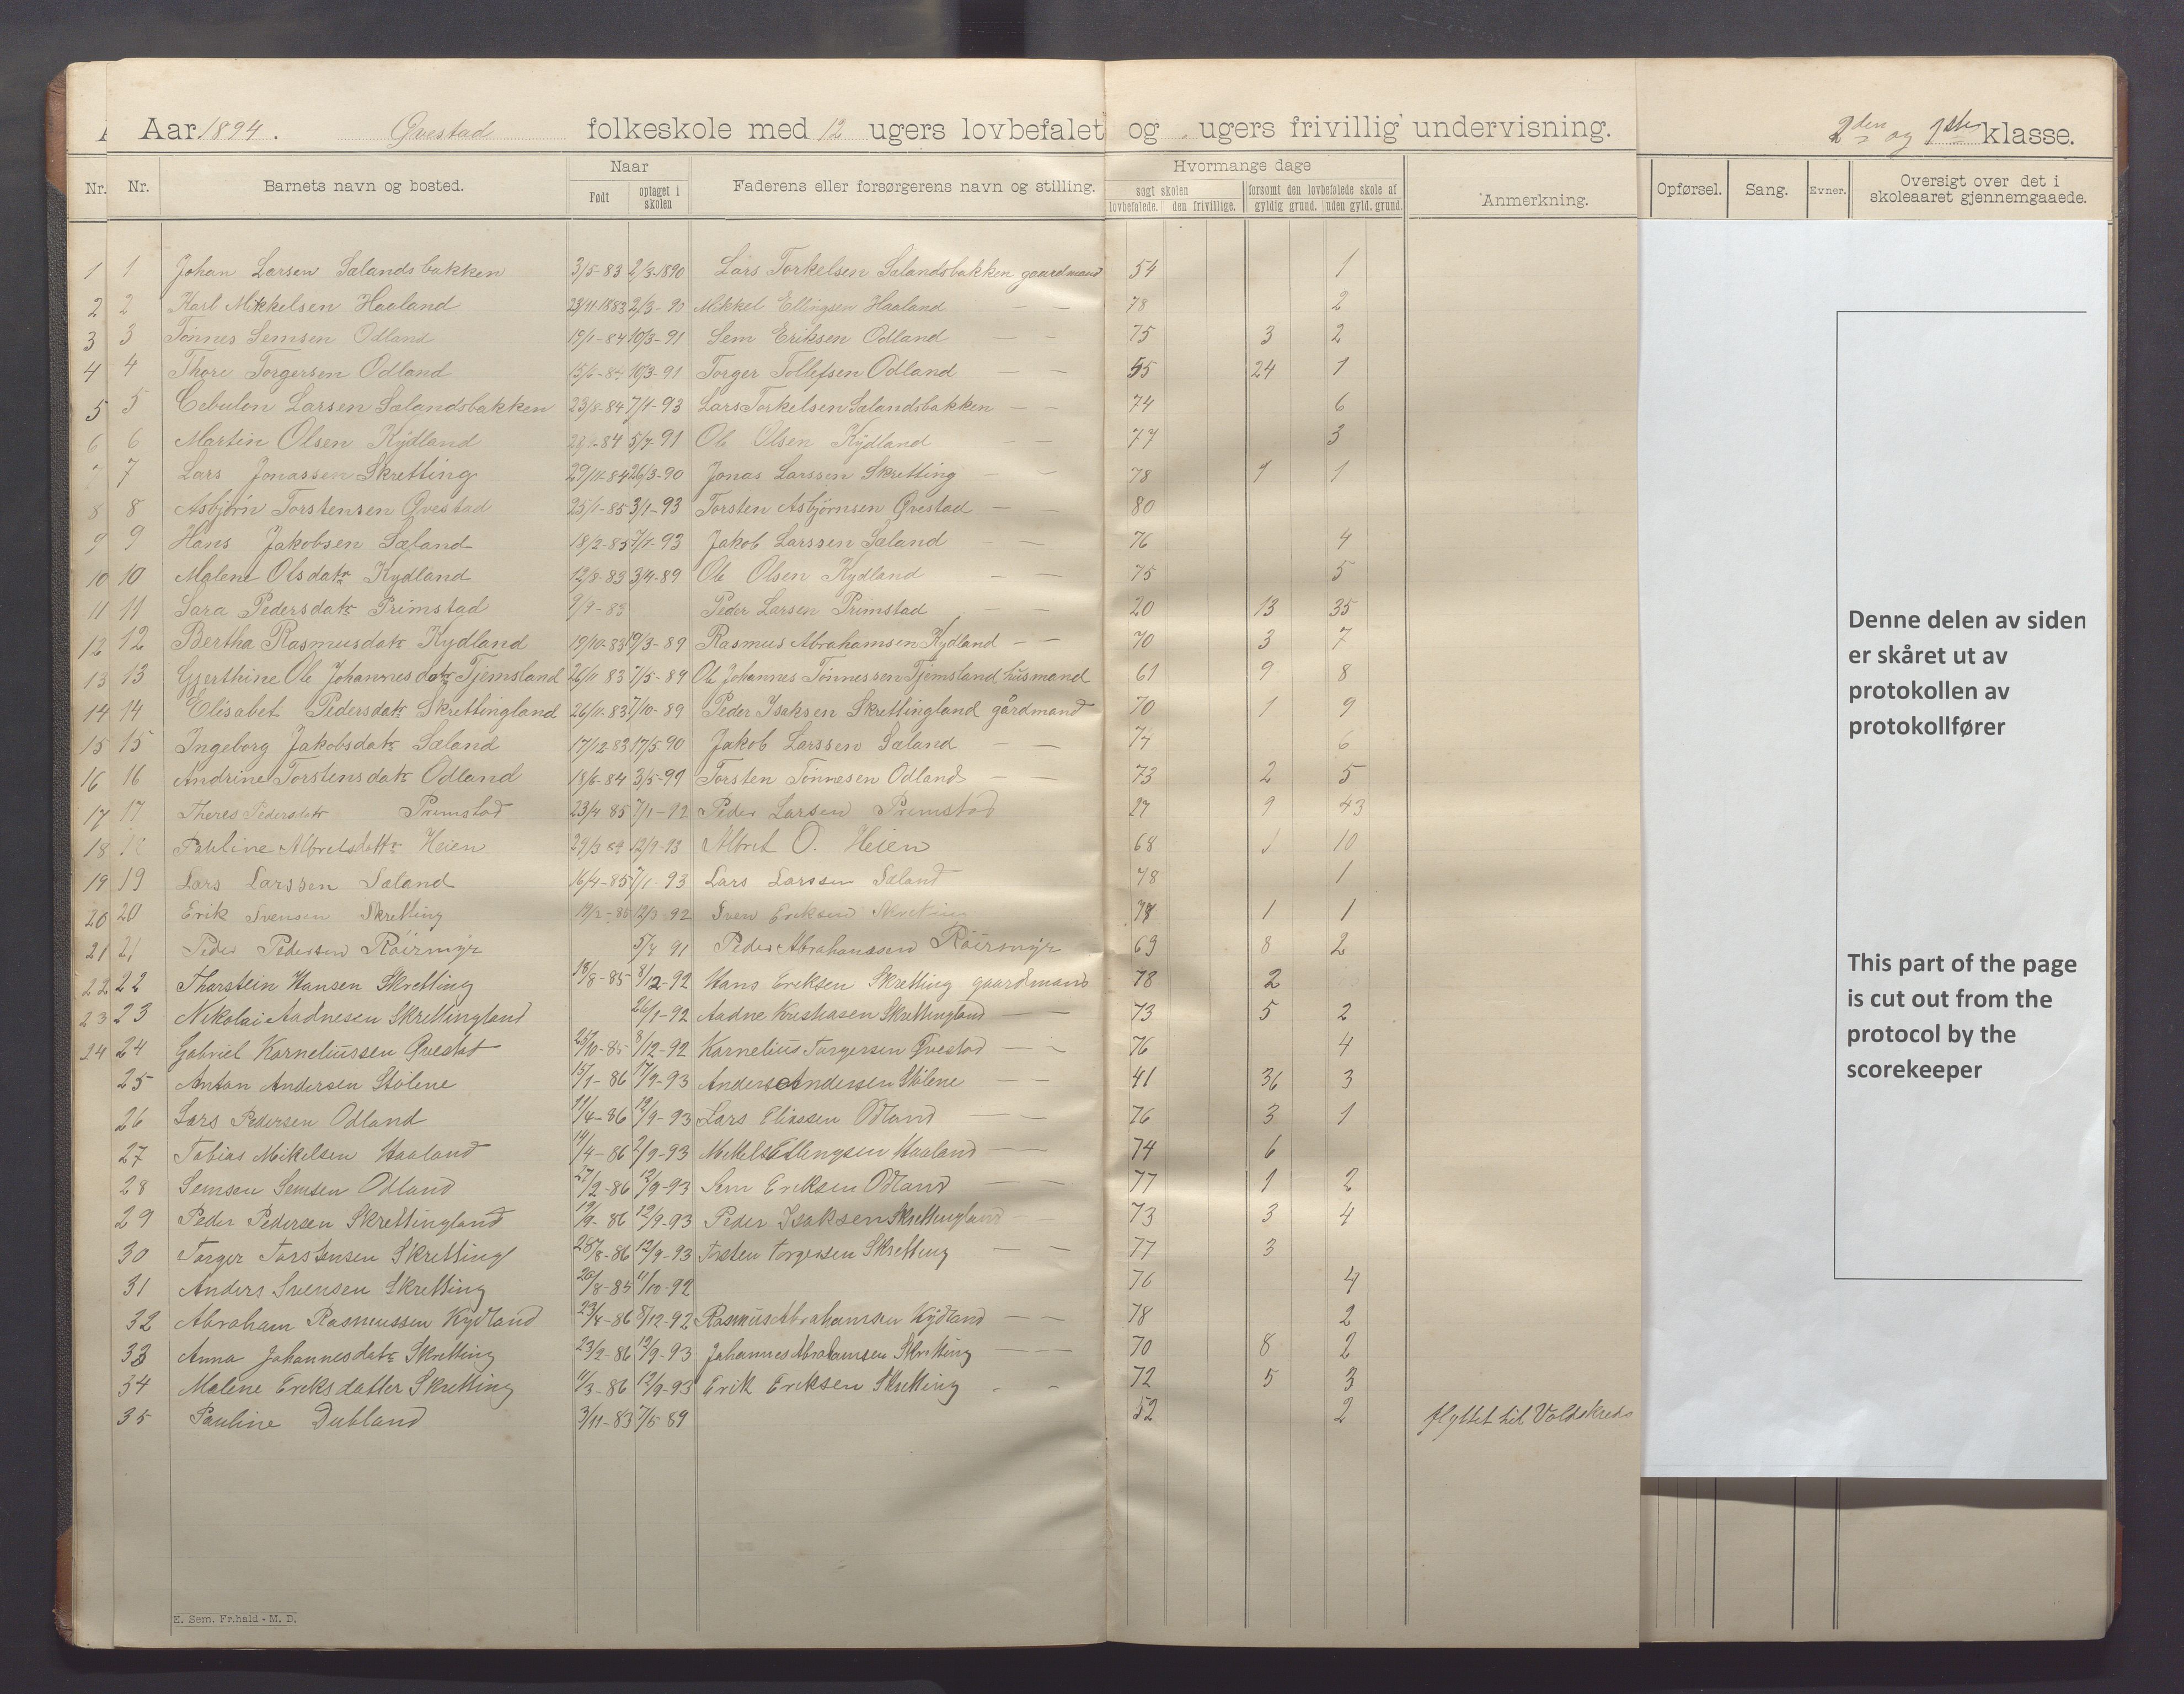 Aar 1894. Qvestad folkeskole med 12 ugers lovbefalet og . ugers frivillig undervisning. 2den og 1ste klasse.
Nr. Nr. Barnets navn og bosted. Naar Født optaget i skolen Faderens eller forsørgerens navn og stilling. Hvormange dage søgt skolen lovbefalede. den frivillige. forsømt den lovbefalede skole af gyldig grund. uden gyld. grund. Anmerkning. Opførsel. Sang. Evner. Oversigt over det i skoleaaret gjennemgaaede.
1 1 Johan Larsen Sælandsbakken 3/5-83 2/3-1890 Lars Torkelsen Sælandsbakken gaardmand 54 1
2 2 Karl Mikkelsen Haaland 23/11-1883 2/3-90 Mikkel Ellingsen Haaland — — 78 2
3 3 Tønnes Semsen Odland 19/1-84 10/3-91 Sem Eriksen Odland — — 75 3 2
4 4 Thore Torgersen Odland 15/6-84 10/3-91 Torger Tollefsen Odland — — 55 24 1
5 5 Cebulon Larsen Sælandsbakken 23/8-84 7/1-93 Lars Torkelsen Sælandsbakken — — 74 6
6 6 Martin Olsen Kydland 5/7-91 Ole Olsen Kydland — — 77 3
7 7 Lars Jonassen Skretting 29/11-84 26/3-90 Jonas Larssen Skretting — — 78 1 1
8 8 Asbjørn Torstensen Qvestad 25/1-85 3/1-93 Torsten Asbjørnsen Qvestad — — 80
9 9 Hans Jakobsen Sæland 18/2-85 7/1-93 Jakob Larssen Sæland — — 76 4
10 10 Malene Olsdatr Kydland 12/8-83 3/4-89 Ole Olsen Kydland — — 75 5
11 11 Sara Pedersdatr Primstad 9/9-83 Peder Larsen Primstad — — 20 13 35
12 12 Bertha Rasmusdatr Kydland 19/10-83 19/3-89 Rasmus Abrahamsen Kydland — — 70 3 7
13 13 Gjerthine Ole Johannesdatr Tjemsland 26/11 83 7/5-89 Ole Johannes Tønnessen Tjemsland husmand 61 9 8
14 14 Elisabet Pedersdatr Skrettingland 26/11-83 7/10-89 Peder Isaksen Skrettingland gårdmand 70 1 9
15 15 Ingeborg Jakobsdatr Sæland 17/12-83 17/5-90 Jakob Larssen Sæland — — 74 6
16 16 Andrine Torstensdatr Odland 18/6-84 3/5-91 Torsten Tønnesen Odland — — 73 2 5
17 17 Theres Pedersdatr Primstad 23/4 85 7/1-92 Peder Larsen Primstad 27 9 43
18 18 Pauline Albretsdattr Heien 29/3 84 12/9-93 Albret O. Heien 68 1 10
19 19 Lars Larssen Sæland 16/4-85 7/1-93 Lars Larssen Sæland 78 1
20 20 Erik Svensen Skretting 19/2-85 12/3-92 Sven Eriksen Skretting 78 1 1
21 21 Peder Pedersen Röirmyr 5/4 91 Peder Abrahamssen Röirmyr 69 8 2
22 22 Tharstein Hansen Skretting 18/8-85 8/12-92 Hans Eriksen Skretting gaardmand 78 2
23 23 Nikolai Aadnesen Skrettingland 26/1-92 Aadne Kristiasen Skrettingland — — 73 5 2
24 24 Gabriel Korneliussen Qvestat 23/10-85 8/12-92 Kornelius Torgersen Qvestad — — 76 4
25 Anton Andersen Stölene 15/1-86 17/9-93 Anders Andersen Stölene — — 41 36 3
26 Lars Pedersen Odland 11/4-86 12/9-93 Lars Eliassen Odland — — 76 3 1
27 Tobias Mikelsen Haaland 14/4-86 2/9-93 Mikkel Ellingsen Haaland — — 74 6
28 Semsen Semsen Odland 27/2-86 12/9-93 Sem Eriksen Odland — — 77 1 2
29 Peder Pedersen Skrettingland 19/9-86 12/9-93 Peder Isaksen Skrettingland — — 73 3 4
30 Torger Torstensen Skretting 12/9-93 Torsten Torgersen Skretting — — 77 3
31 Anders Svensen Skretting 20/8-85 11/10-92 76 4
32 Abraham Rasmussen Kydland 23/4-86 8/12-92 Rasmus Abrahamsen Kydland — — 78 2
33 Anna Johannesdatr Skretting 23/2-86 12/9-93 Johannes Abrahamsen Skretting — — 70 8 2
34 Malene Eriksdatter Skretting 11/3-86 12/9-93 Erik Eriksen Skretting - - 72 5 3
35 Pauline Dubland 3/11-83 7/5-89 52 2 flyttet til Voldskreds
E. Sem, Fr.hald - M. D.
Denne delen av siden
er skåret ut av
protokollen av
protokollfører
This part of the page
is cut out from the
protocol by the
scorekeeper